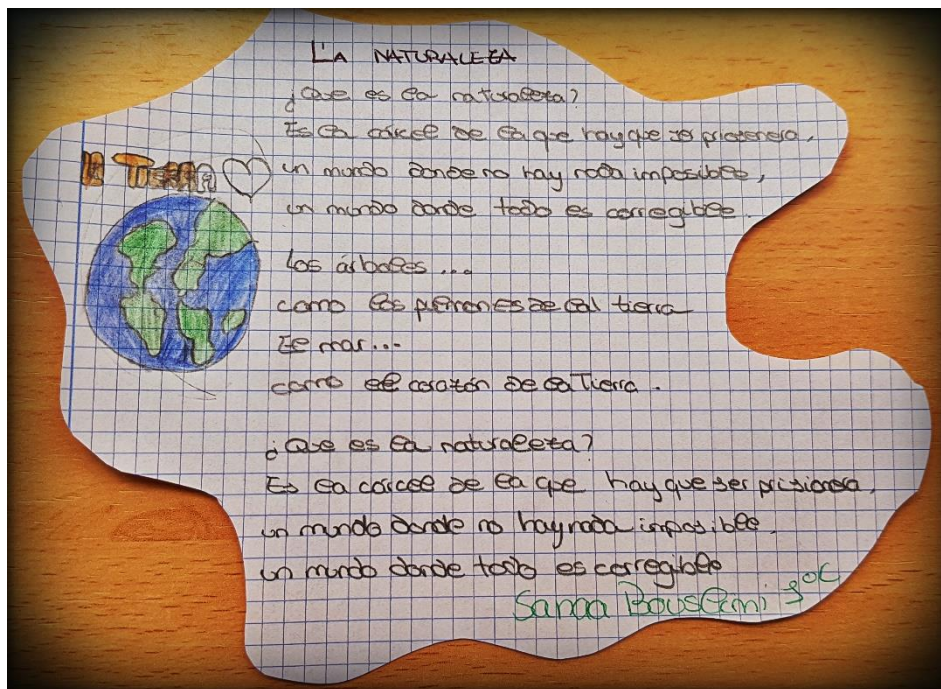 LA NATURALEZA
¿Que es la naturaleza?
Es la cárcel de la que hay que ser prisionera,
un mundo donde no hay nada imposible,
un mundo donde todo es corregible.
la Tierra
Los árboles...
como los pulmones de la tierra
El mar...
como el corazón de la Tierra.
¿Que es la naturaleza?
Es la cárcel de la que hay que ser prisionera,
un mundo donde no hay nada imposible,
un mundo donde todo es corregible
Sanaa Bouslimi ºC